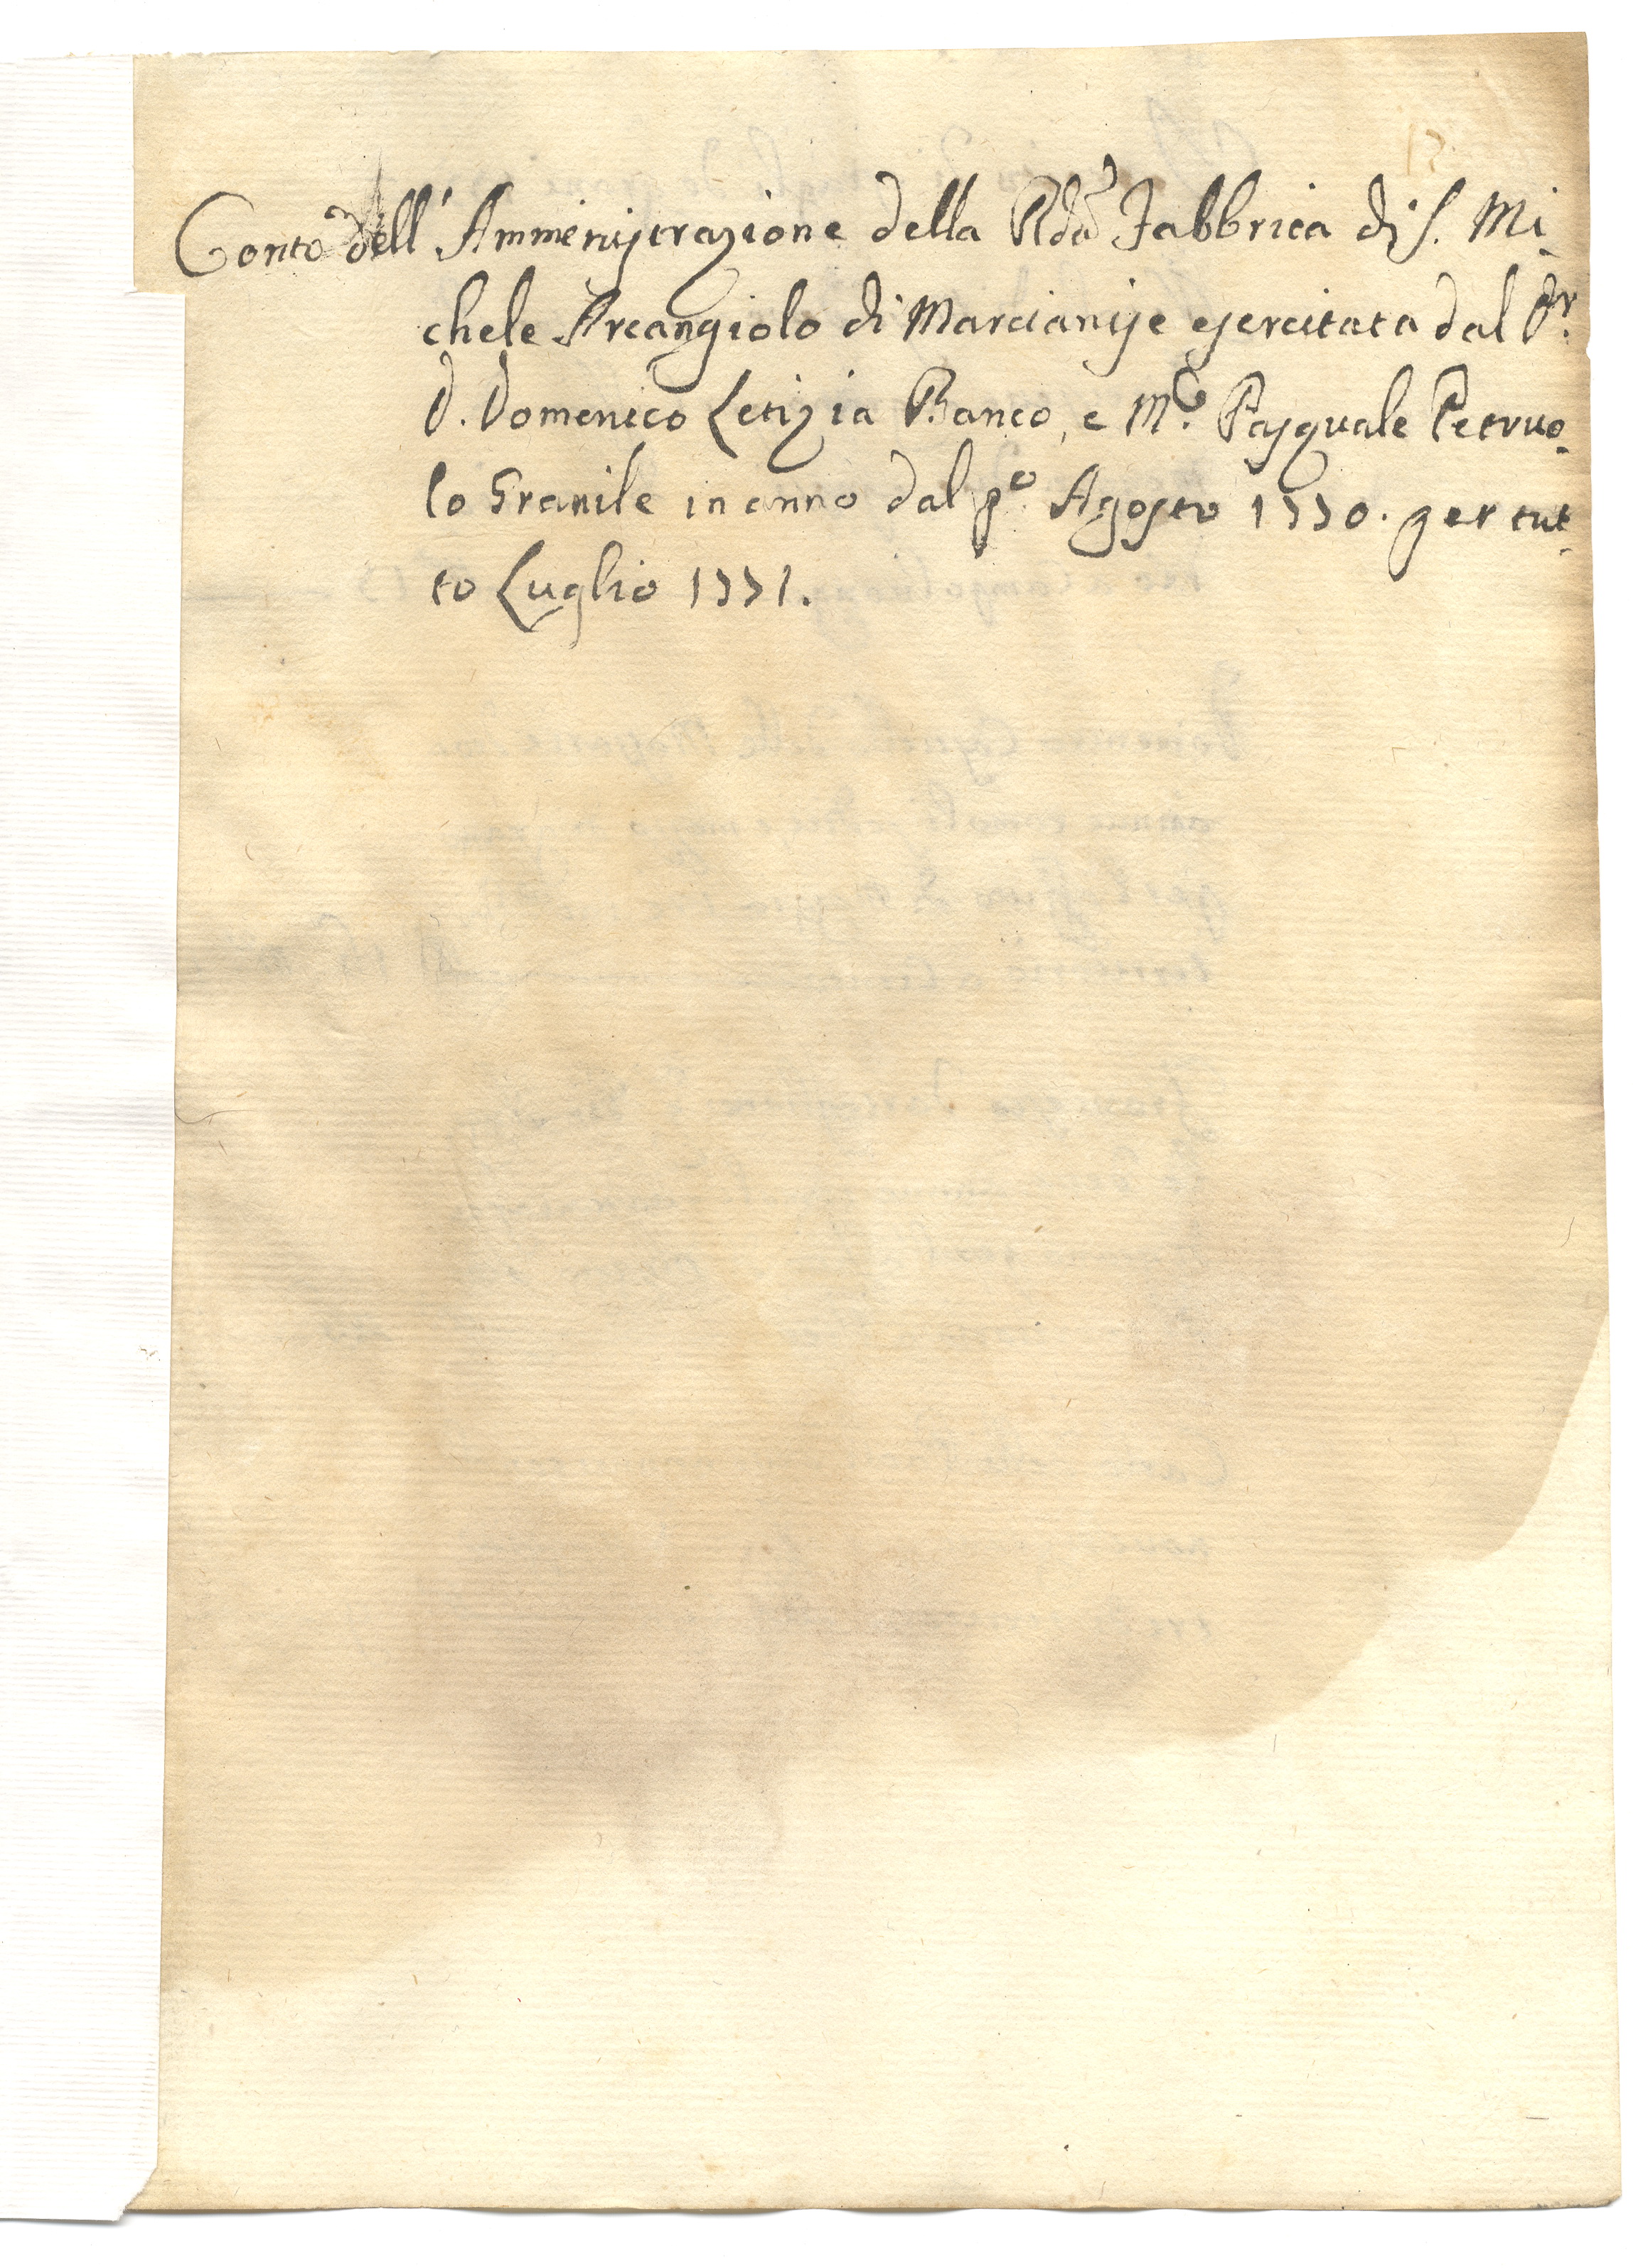 Conto dell' Amministrazione della Rda Fabbrica di S. Mi-
chele Arcangiolo di Marcianise esercitata dal Dr.
D. Domenico Letizia Banco, e Mco. Pasquale Petruo-
lo Granile in anno dal po. Agosto 1770. per tut-
to Luglio 1771.